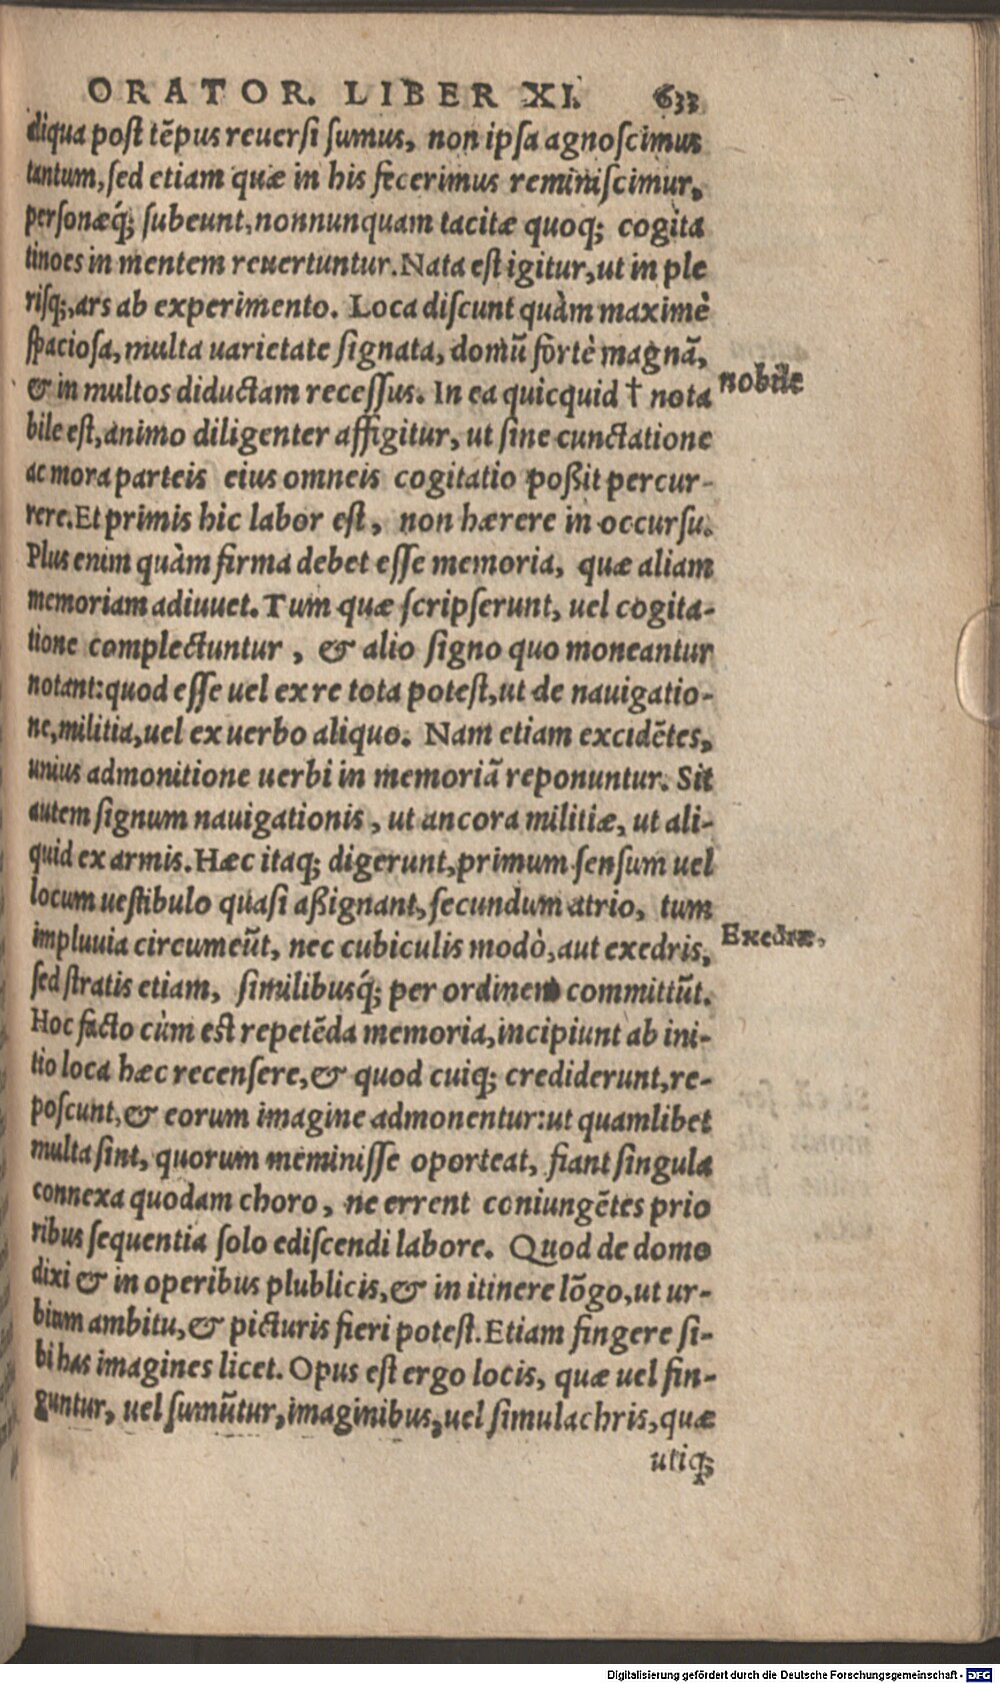 ORATOR. LIBER XI. 633
aliqua post tẽpus reuersi sumus, non ipsa agnoscimus
tantum, sed etiam quæ in his fecerimus reminiscimur,
personæq́; subeunt, nonnunquam tacitæ quoq; cogita
tinoes in mentem reuertuntur. Nata est igitur, ut in ple
risq;, ars ab experimento. Loca discunt quàm maximè
spaciosa, multa uarietate signata, domũ fortè magnã,
& in multos diductam recessus. In ea quicquid † nota
nobile
bile est, animo diligenter affigitur, ut sine cunctatione
ac mora parteis eius omneis cogitatio poßit percur-
rere. Et primis hic labor est, non hærere in occursu.
Plus enim quàm firma debet esse memoria, quæ aliam
memoriam adiuuet. Tum quæ scripserunt, uel cogita-
tione complectuntur, & alio signo quo moneantur
notant: quod esse uel ex re tota potest, ut de nauigatio-
ne, militia, uel ex uerbo aliquo. Nam etiam excidẽtes,
unius admonitione uerbi in memoriã reponuntur. Sit
autem signum nauigationis, ut ancora militiæ, ut ali-
quid ex armis. Hæc itaq; digerunt, primum sensum uel
locum uestibulo quasi aßignant, secundum atrio, tum
impluuia circumeũt, nec cubiculis modò, aut exedris,
Exedræ,
sed stratis etiam, similibusq́; per ordinem committũt.
Hoc facto cùm est repetẽda memoria, incipiunt ab ini-
tio loca hæc recensere, & quod cuiq; crediderunt, re-
poscunt, & eorum imagine admonentur: ut quamlibet
multa sint, quorum meminisse oporteat, fiant singula
connexa quodam choro, ne errent coniungẽtes prio
ribus sequentia solo ediscendi labore. Quod de domo
dixi & in operibus plublicis, & in itinere lõgo, ut ur-
bium ambitu, & picturis fieri potest. Etiam fingere si-
bi has imagines licet. Opus est ergo locis, quæ uel fin-
guntur, uel sumũtur, imaginibus, uel simulachris, quæ
utiq;
Digitalisierung gefördert durch die Deutsche Forschungsgemeinschaft - DFG